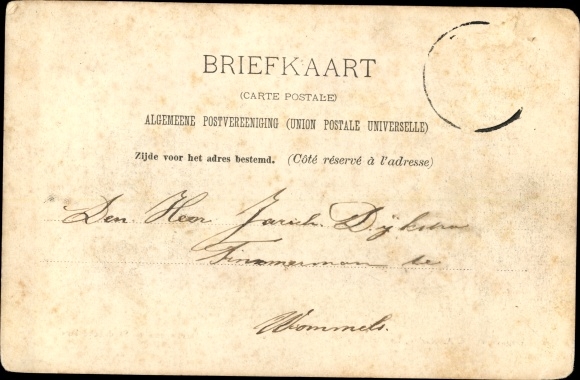 BRIEFKAART
(CARTE POSTALE)
ALGEMEENE POSTVEREENIGING (UNION POSTALE UNIVERSELLE)
Zijde voor het adres bestemd. (Côté réservé à l'adresse)
Den Heer Jarich Dijkstra
Timmerman te
Wommels.